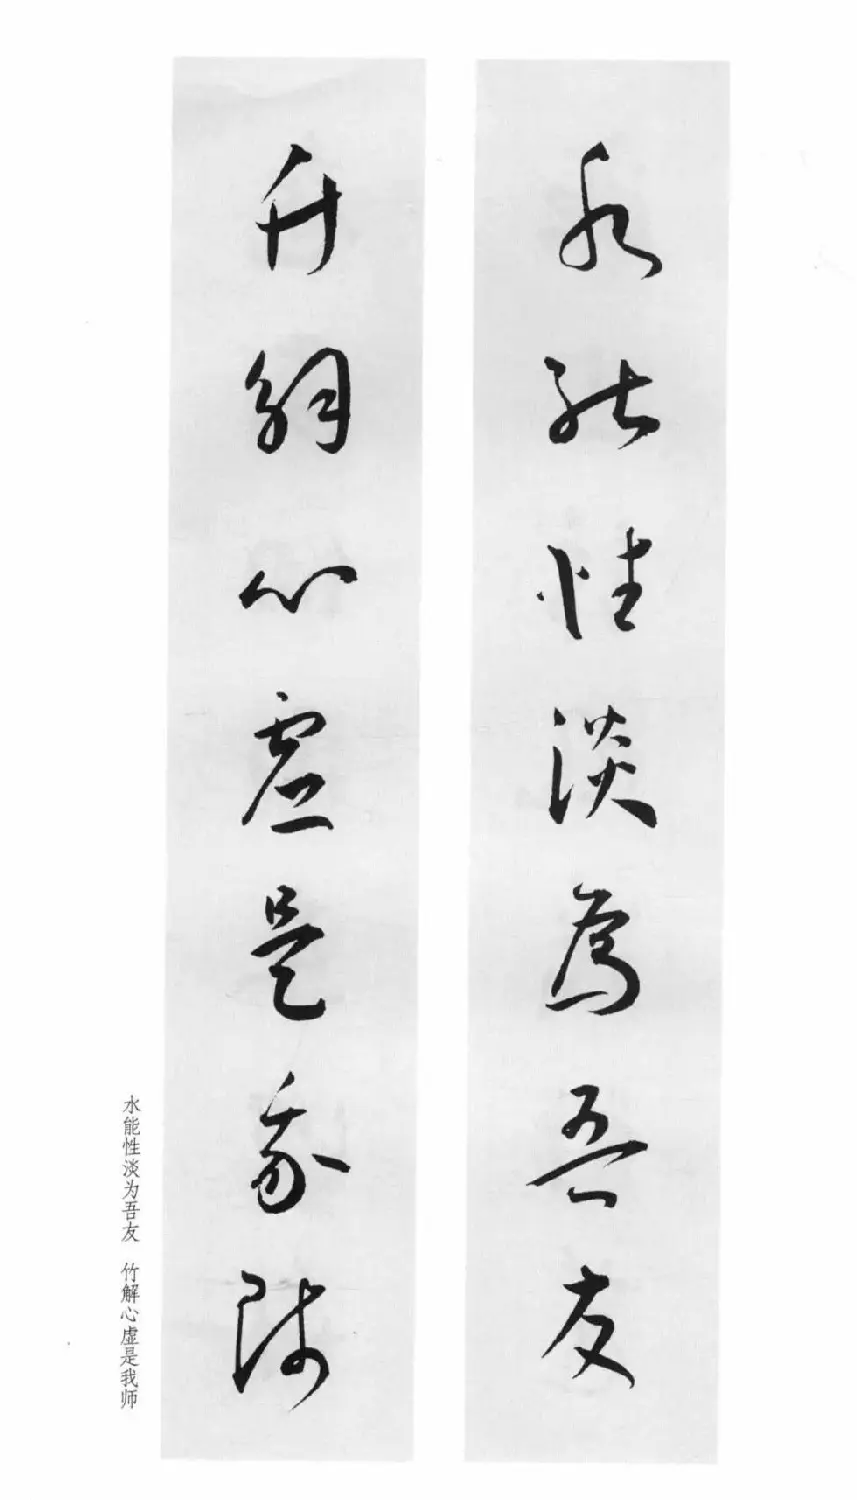 水能性淡為吾友
竹解心虛是我師
水能性淡为吾友 竹解心虚是我师